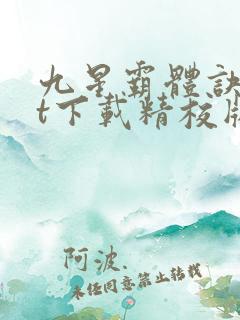 九星霸體訣
t下載精校版
阿波.
未经同意禁止转载